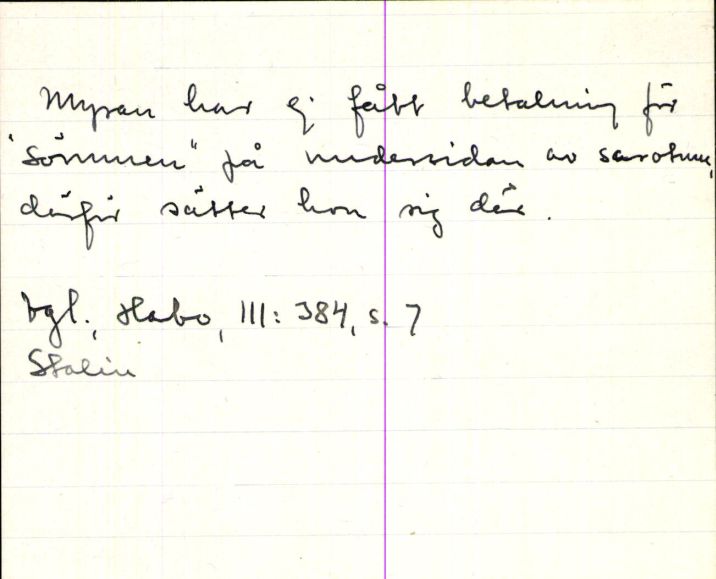 Myran har ej fått betalning för
"sömmen" på undersidan av scrotum,
därför sätter hon sig där.
Vgl., Habo, III: 384, s. 7
Stolin